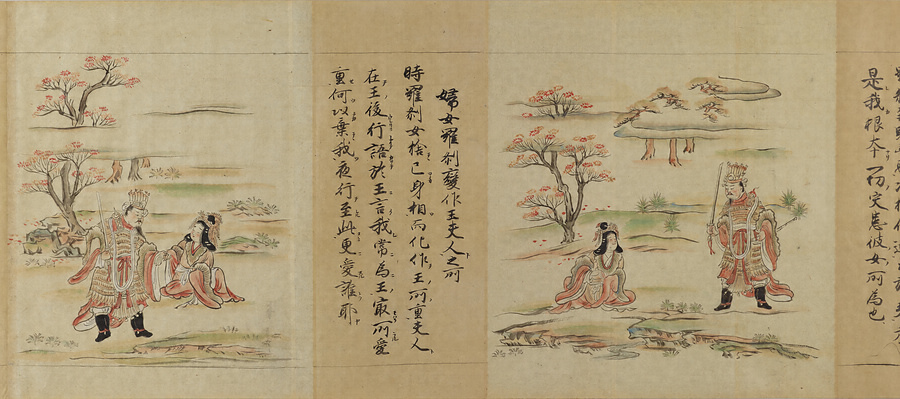 是我根本而彼女所為也
婦女羅刹變作王夫人之所
時羅刹女捨己身相而化作王所重夫人
在王後行語於王言我常為王冣所愛
重何以棄我夜行至此更愛誰耶